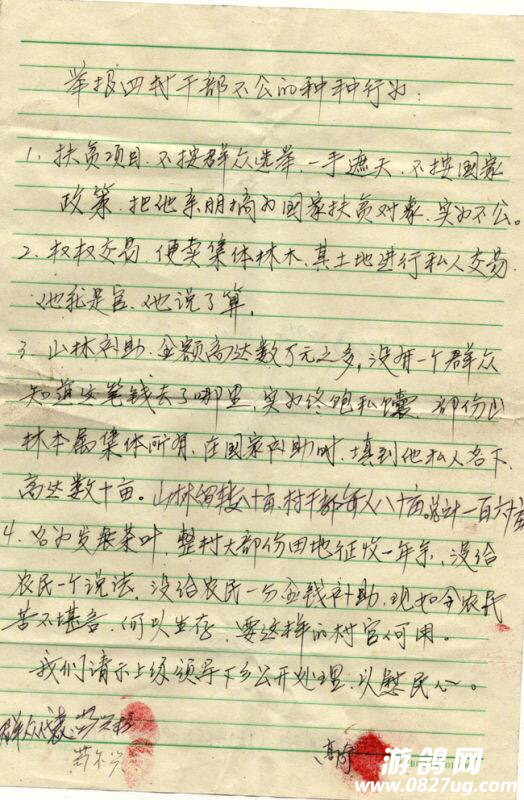 举报四村干部不公的种种行为:
1、扶贫项目.不按群众选举.一手遮天.不按国家
政策.把他亲朋搞为国家扶贫对象.实为不公。
2、权权交易.便卖集体林木.其土地进行私人交易.
他就是官.他说了算.
3、山林补助.金额高达数万元之多,没有一个群众
知道这笔钱去了哪里.实为终饱私囊.部份山
林本属集体所有.在国家补助时.填到他私人名下.
高达数十亩。山林 八十亩.村干部每人八十亩。总计一百六十亩
4、名为发展茶叶.整村大部份田地征收一年余.没给
农民一个说法.没给农民一分金钱补助.现如今农民
苦不堪言.何以生存.要这样的村官何用。
我们请示上级领导下乡公开处理.以慰民心。
群众代表:
游鸽网
www.0827ug.com